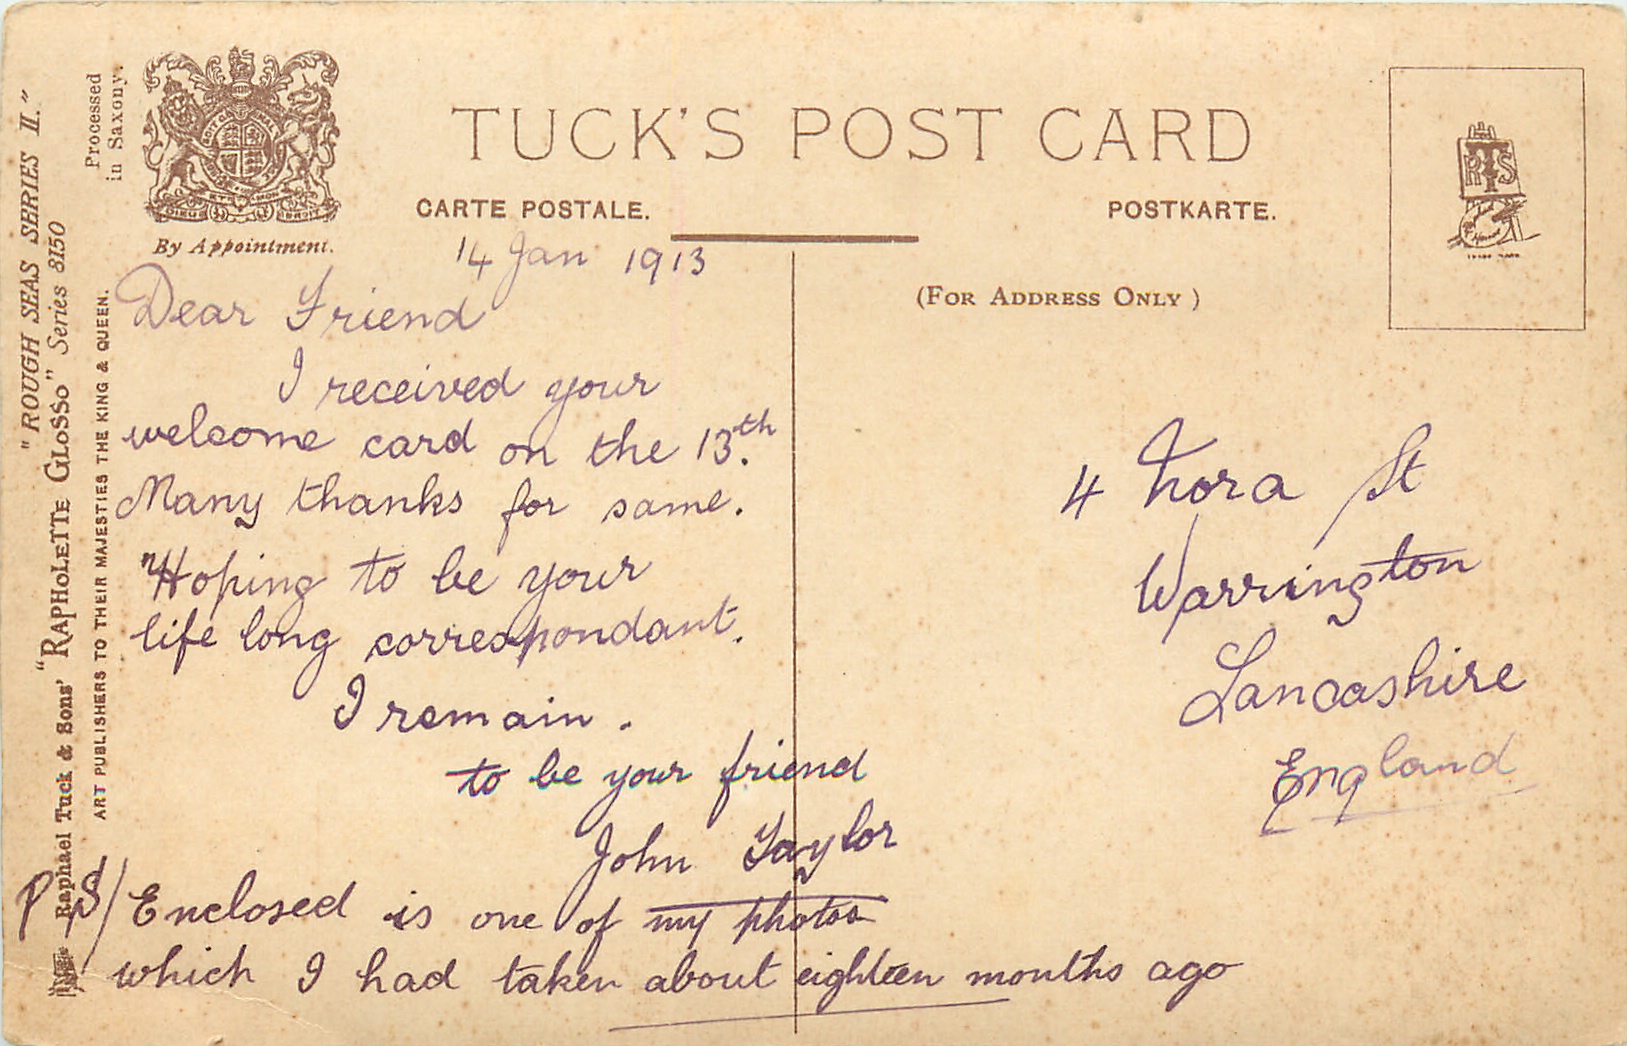 TUCK'S POST CARD
CARTE POSTALE.
POSTKARTE.
(FOR ADDRESS ONLY)
By Appointment.
Processed
in Saxony.
"ROUGH SEAS SERIES II."
Raphael Tuck & Sons' "RAPHOLETTE GLOSSO" Series 8150
ART PUBLISHERS TO THEIR MAJESTIES THE KING & QUEEN.
RTS
TRADE MARK
14 Jan 1913
Dear Friend
I received your
welcome card on the 13th.
Many thanks for same.
Hoping to be your
life long correspondant.
I remain.
to be your friend
John Taylor
P S/ Enclosed is one of my photos
which I had taken about eighteen months ago
4 Nora St
Warrington
Lancashire
England